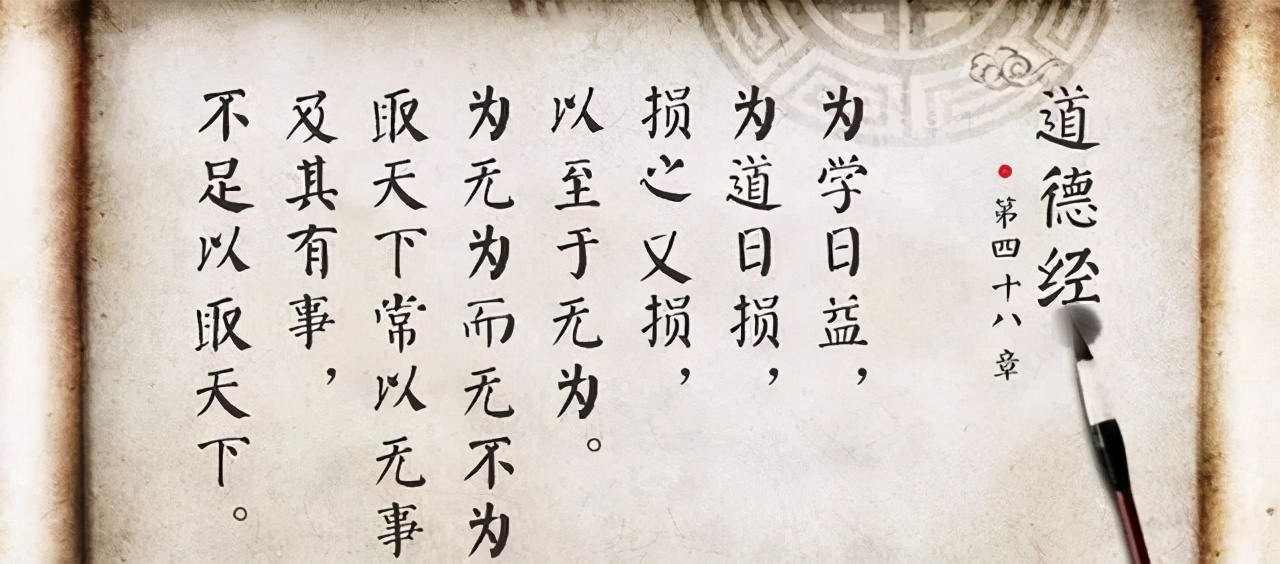 道德经
第四十八章
为学日益，
为道日损，
损之又损，
以至于无为。
为无为而无不为
取天下常以无事
及其有事，
不足以取天下。